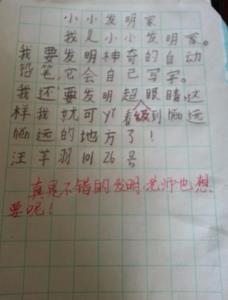 小小发明家
我是小小发明家。
我要发明神奇的自动
铅笔,它会自己写字。
我还要发明超眼睛,这
样我就可以看到很远
的地方了!
汪芊羽 101 26号
真是不错的发明,老师也想
要呢!